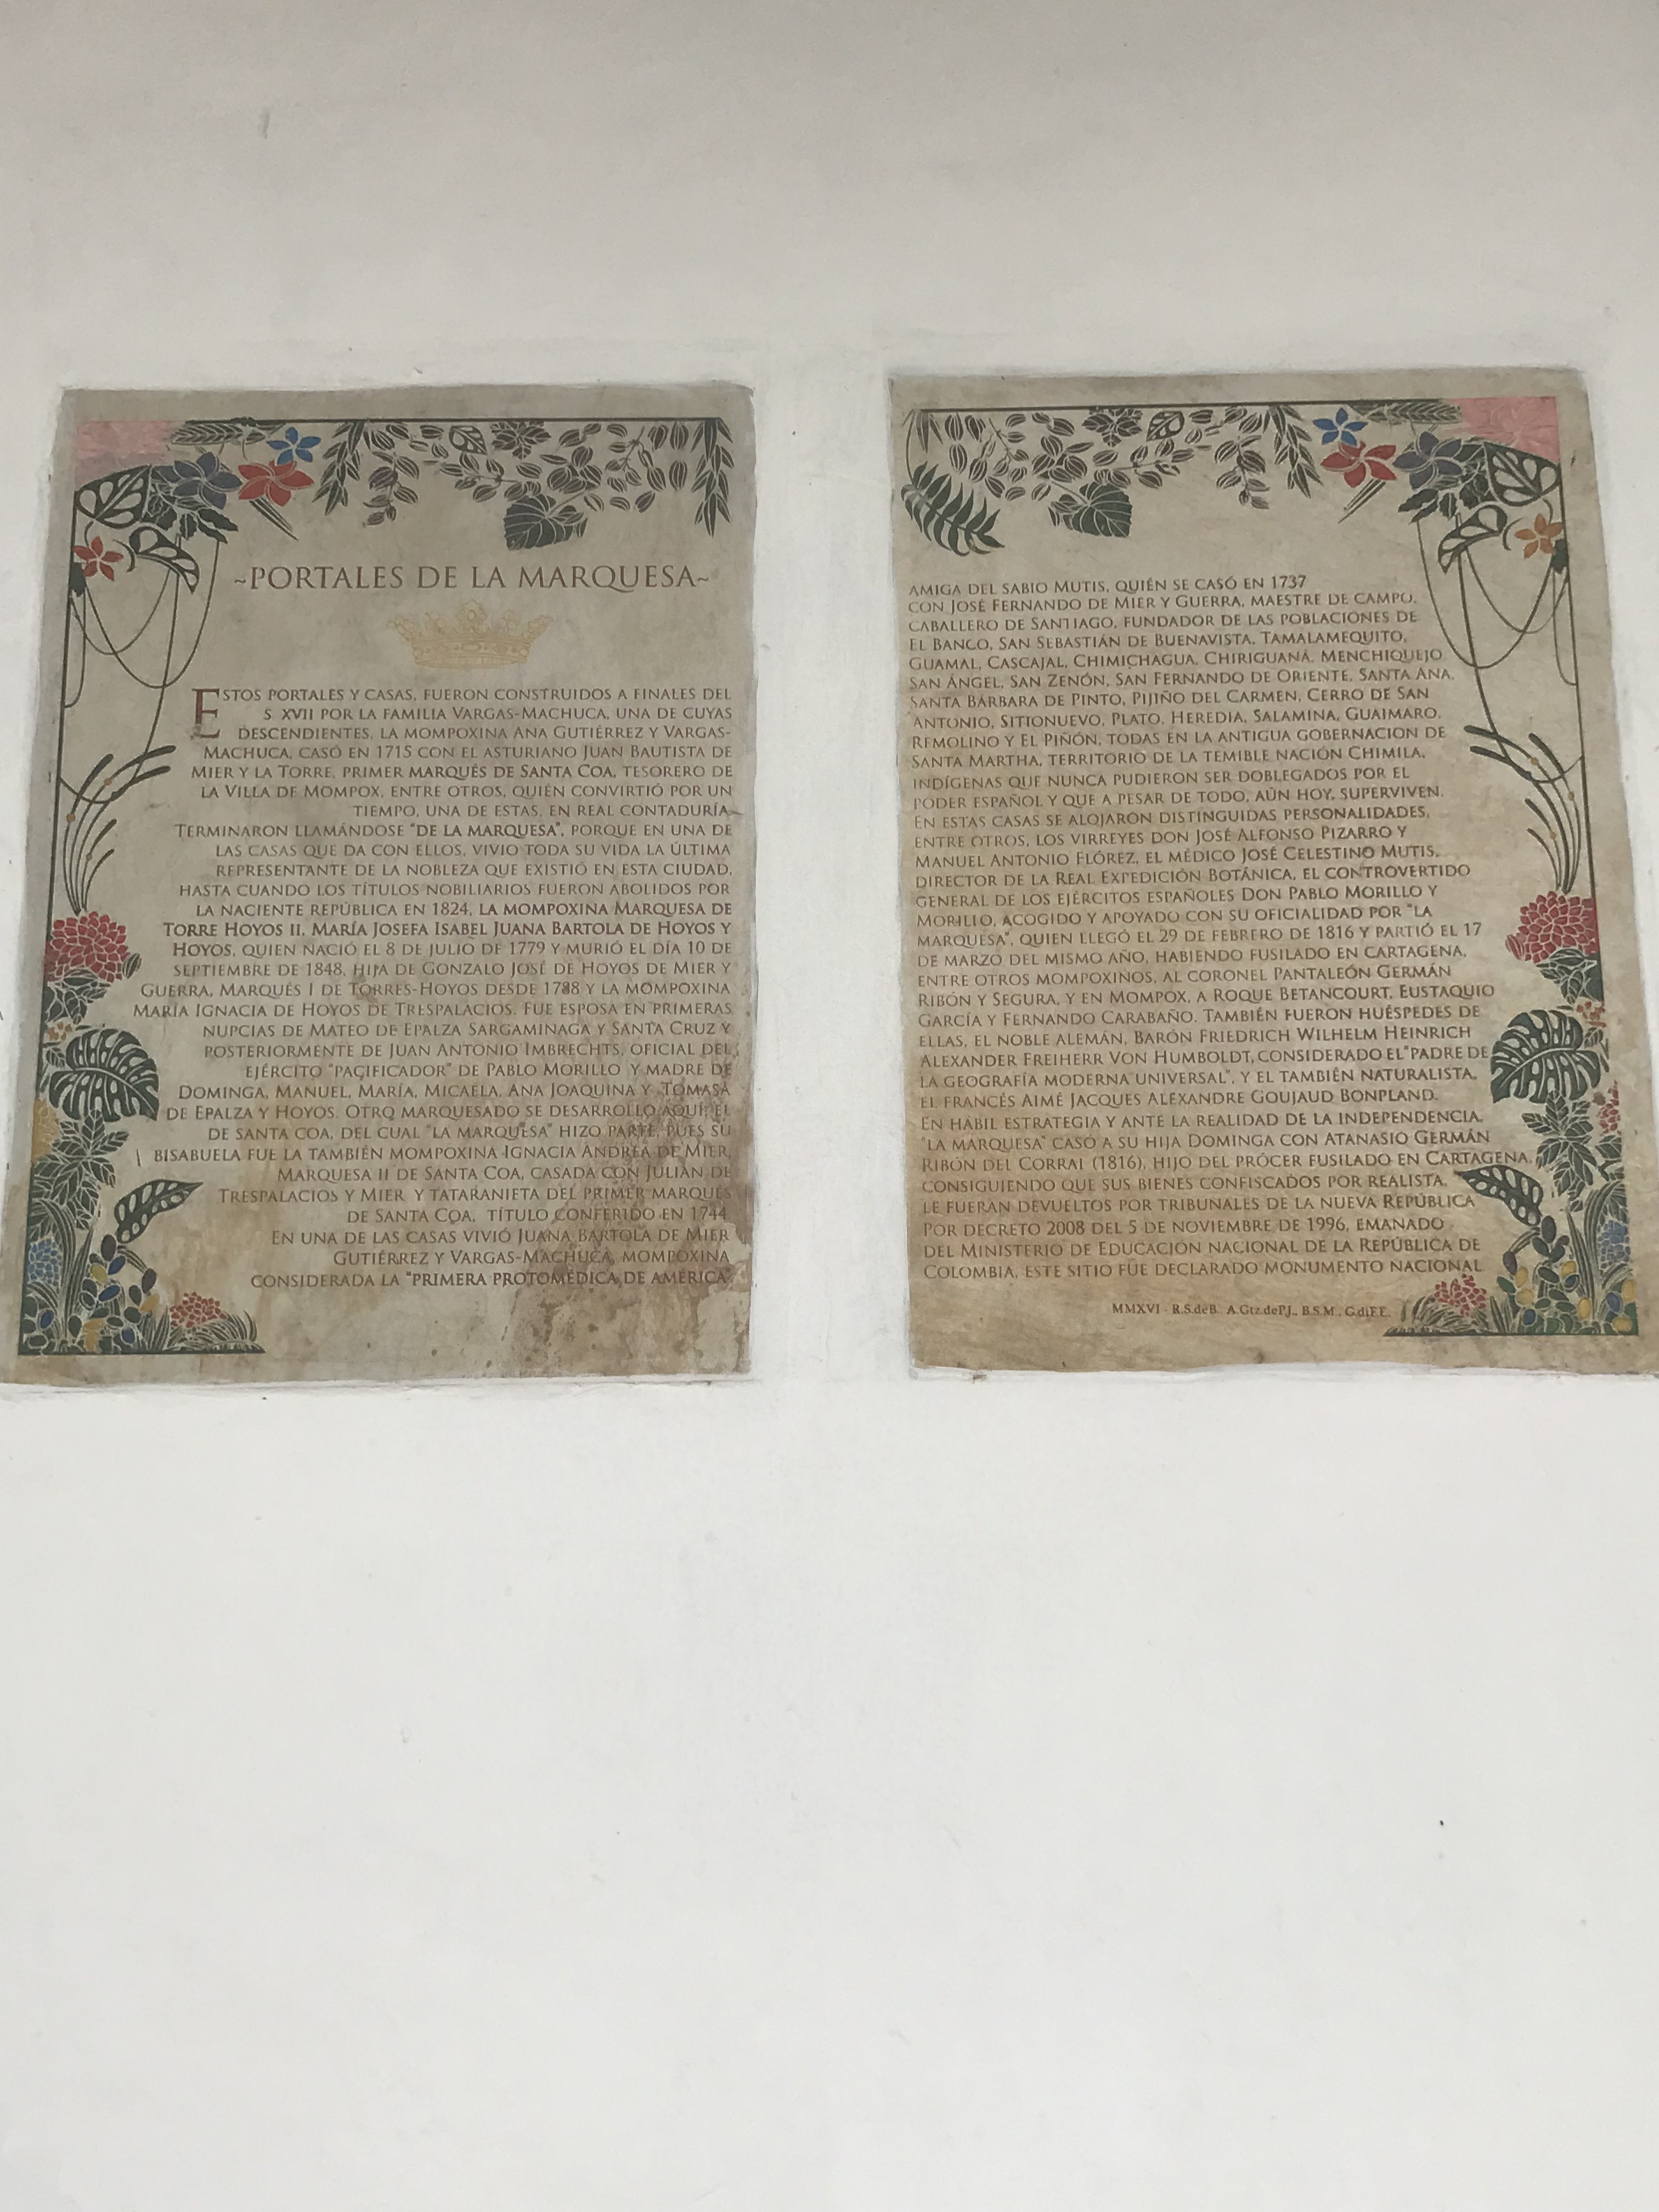 ~PORTALES DE LA MARQUESA~
ESTOS PORTALES Y CASAS, FUERON CONSTRUIDOS A FINALES DEL
S. XVII POR LA FAMILIA VARGAS-MACHUCA, UNA DE CUYAS
DESCENDIENTES, LA MOMPOXINA ANA GUTIÉRREZ Y VARGAS-
MACHUCA, CASÓ EN 1715 CON EL ASTURIANO JUAN BAUTISTA DE
MIER Y LA TORRE, PRIMER MARQUÉS DE SANTA COA, TESORERO DE
LA VILLA DE MOMPOX, ENTRE OTROS, QUIÉN CONVIRTIÓ POR UN
TIEMPO, UNA DE ESTAS, EN REAL CONTADURÍA.
TERMINARON LLAMÁNDOSE "DE LA MARQUESA", PORQUE EN UNA DE
LAS CASAS QUE DA CON ELLOS, VIVIO TODA SU VIDA LA ÚLTIMA
REPRESENTANTE DE LA NOBLEZA QUE EXISTIÓ EN ESTA CIUDAD,
HASTA CUANDO LOS TÍTULOS NOBILIARIOS FUERON ABOLIDOS POR
LA NACIENTE REPÚBLICA EN 1824, LA MOMPOXINA MARQUESA DE
TORRE HOYOS II, MARÍA JOSEFA ISABEL JUANA BARTOLA DE HOYOS Y
HOYOS, QUIEN NACIÓ EL 8 DE JULIO DE 1779 Y MURIÓ EL DÍA 10 DE
SEPTIEMBRE DE 1848, HIJA DE GONZALO JOSÉ DE HOYOS DE MIER Y
GUERRA, MARQUÉS I DE TORRES-HOYOS DESDE 1788 Y LA MOMPOXINA
MARÍA IGNACIA DE HOYOS DE TRESPALACIOS. FUE ESPOSA EN PRIMERAS
NUPCIAS DE MATEO DE EPALZA SARGAMINAGA Y SANTA CRUZ Y
POSTERIORMENTE DE JUAN ANTONIO IMBRECHTS, OFICIAL DEL
EJÉRCITO "PACIFICADOR" DE PABLO MORILLO Y MADRE DE
DOMINGA, MANUEL, MARÍA, MICAELA, ANA JOAQUINA Y TOMASA
DE EPALZA Y HOYOS. OTRO MARQUESADO SE DESARROLLO AQUÍ: EL
DE SANTA COA, DEL CUAL "LA MARQUESA" HIZO PARTE, PUES SU
BISABUELA FUE LA TAMBIÉN MOMPOXINA IGNACIA ANDREA DE MIER,
MARQUESA II DE SANTA COA, CASADA CON JULIÁN DE
TRESPALACIOS Y MIER Y TATARANIETA DEL PRIMER MARQUÉS
DE SANTA COA, TÍTULO CONFERIDO EN 1744.
EN UNA DE LAS CASAS VIVIÓ JUANA BARTOLA DE MIER
GUTIÉRREZ Y VARGAS-MACHUCA, MOMPOXINA
CONSIDERADA LA "PRIMERA PROTOMÉDICA DE AMÉRICA".
AMIGA DEL SABIO MUTIS, QUIÉN SE CASÓ EN 1737
CON JOSÉ FERNANDO DE MIER Y GUERRA, MAESTRE DE CAMPO,
CABALLERO DE SANTIAGO, FUNDADOR DE LAS POBLACIONES DE
EL BANCO, SAN SEBASTIÁN DE BUENAVISTA, TAMALAMEQUITO,
GUAMAL, CASCAJAL, CHIMICHAGUA, CHIRIGUANÁ, MENCHIQUEJO,
SAN ÁNGEL, SAN ZENÓN, SAN FERNANDO DE ORIENTE, SANTA ANA,
SANTA BÁRBARA DE PINTO, PIJIÑO DEL CARMEN, CERRO DE SAN
ANTONIO, SITIONUEVO, PLATO, HEREDIA, SALAMINA, GUAIMARO,
REMOLINO Y EL PIÑÓN, TODAS EN LA ANTIGUA GOBERNACION DE
SANTA MARTHA, TERRITORIO DE LA TEMIBLE NACIÓN CHIMILA,
INDÍGENAS QUE NUNCA PUDIERON SER DOBLEGADOS POR EL
PODER ESPAÑOL Y QUE A PESAR DE TODO, AÚN HOY, SUPERVIVEN.
EN ESTAS CASAS SE ALOJARON DISTINGUIDAS PERSONALIDADES,
ENTRE OTROS, LOS VIRREYES DON JOSÉ ALFONSO PIZARRO Y
MANUEL ANTONIO FLÓREZ, EL MÉDICO JOSÉ CELESTINO MUTIS,
DIRECTOR DE LA REAL EXPEDICIÓN BOTÁNICA, EL CONTROVERTIDO
GENERAL DE LOS EJÉRCITOS ESPAÑOLES DON PABLO MORILLO Y
MORILLO, ACOGIDO Y APOYADO CON SU OFICIALIDAD POR "LA
MARQUESA", QUIEN LLEGÓ EL 29 DE FEBRERO DE 1816 Y PARTIÓ EL 17
DE MARZO DEL MISMO AÑO, HABIENDO FUSILADO EN CARTAGENA,
ENTRE OTROS MOMPOXINOS, AL CORONEL PANTALEÓN GERMÁN
RIBÓN Y SEGURA, Y EN MOMPOX, A ROQUE BETANCOURT, EUSTAQUIO
GARCÍA Y FERNANDO CARABAÑO. TAMBIÉN FUERON HUÉSPEDES DE
ELLAS, EL NOBLE ALEMÁN, BARÓN FRIEDRICH WILHELM HEINRICH
ALEXANDER FREIHERR VON HUMBOLDT, CONSIDERADO EL "PADRE DE
LA GEOGRAFÍA MODERNA UNIVERSAL", Y EL TAMBIÉN NATURALISTA,
EL FRANCÉS AIMÉ JACQUES ALEXANDRE GOUJAUD BONPLAND.
EN HÁBIL ESTRATEGIA Y ANTE LA REALIDAD DE LA INDEPENDENCIA,
"LA MARQUESA" CASÓ A SU HIJA DOMINGA CON ATANASIO GERMÁN
RIBÓN DEL CORRAL (1816), HIJO DEL PRÓCER FUSILADO EN CARTAGENA,
CONSIGUIENDO QUE SUS BIENES CONFISCADOS POR REALISTA,
LE FUERAN DEVUELTOS POR TRIBUNALES DE LA NUEVA REPÚBLICA
POR DECRETO 2008 DEL 5 DE NOVIEMBRE DE 1996, EMANADO
DEL MINISTERIO DE EDUCACIÓN NACIONAL DE LA REPÚBLICA DE
COLOMBIA, ESTE SITIO FUE DECLARADO MONUMENTO NACIONAL
MMXVI - R.S.deB. A.Gtz.deP.J., B.S.M., G.diF.E.